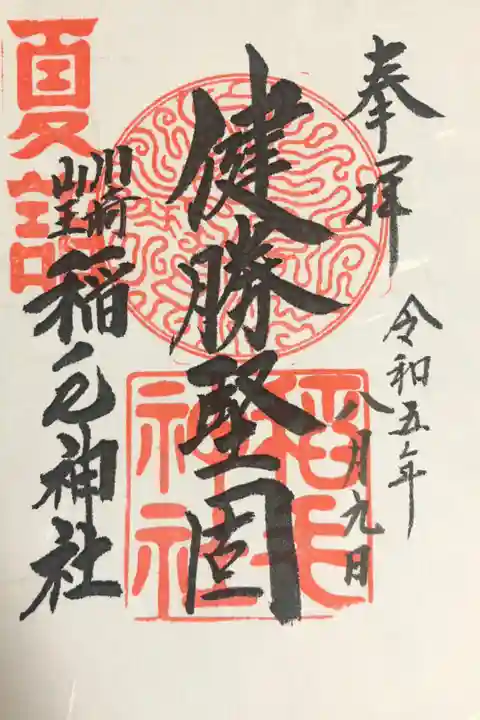 奉拝
令和五年
八月元日
健勝堅固
夏詣
川崎
山王
稲毛神社
稲毛
神社